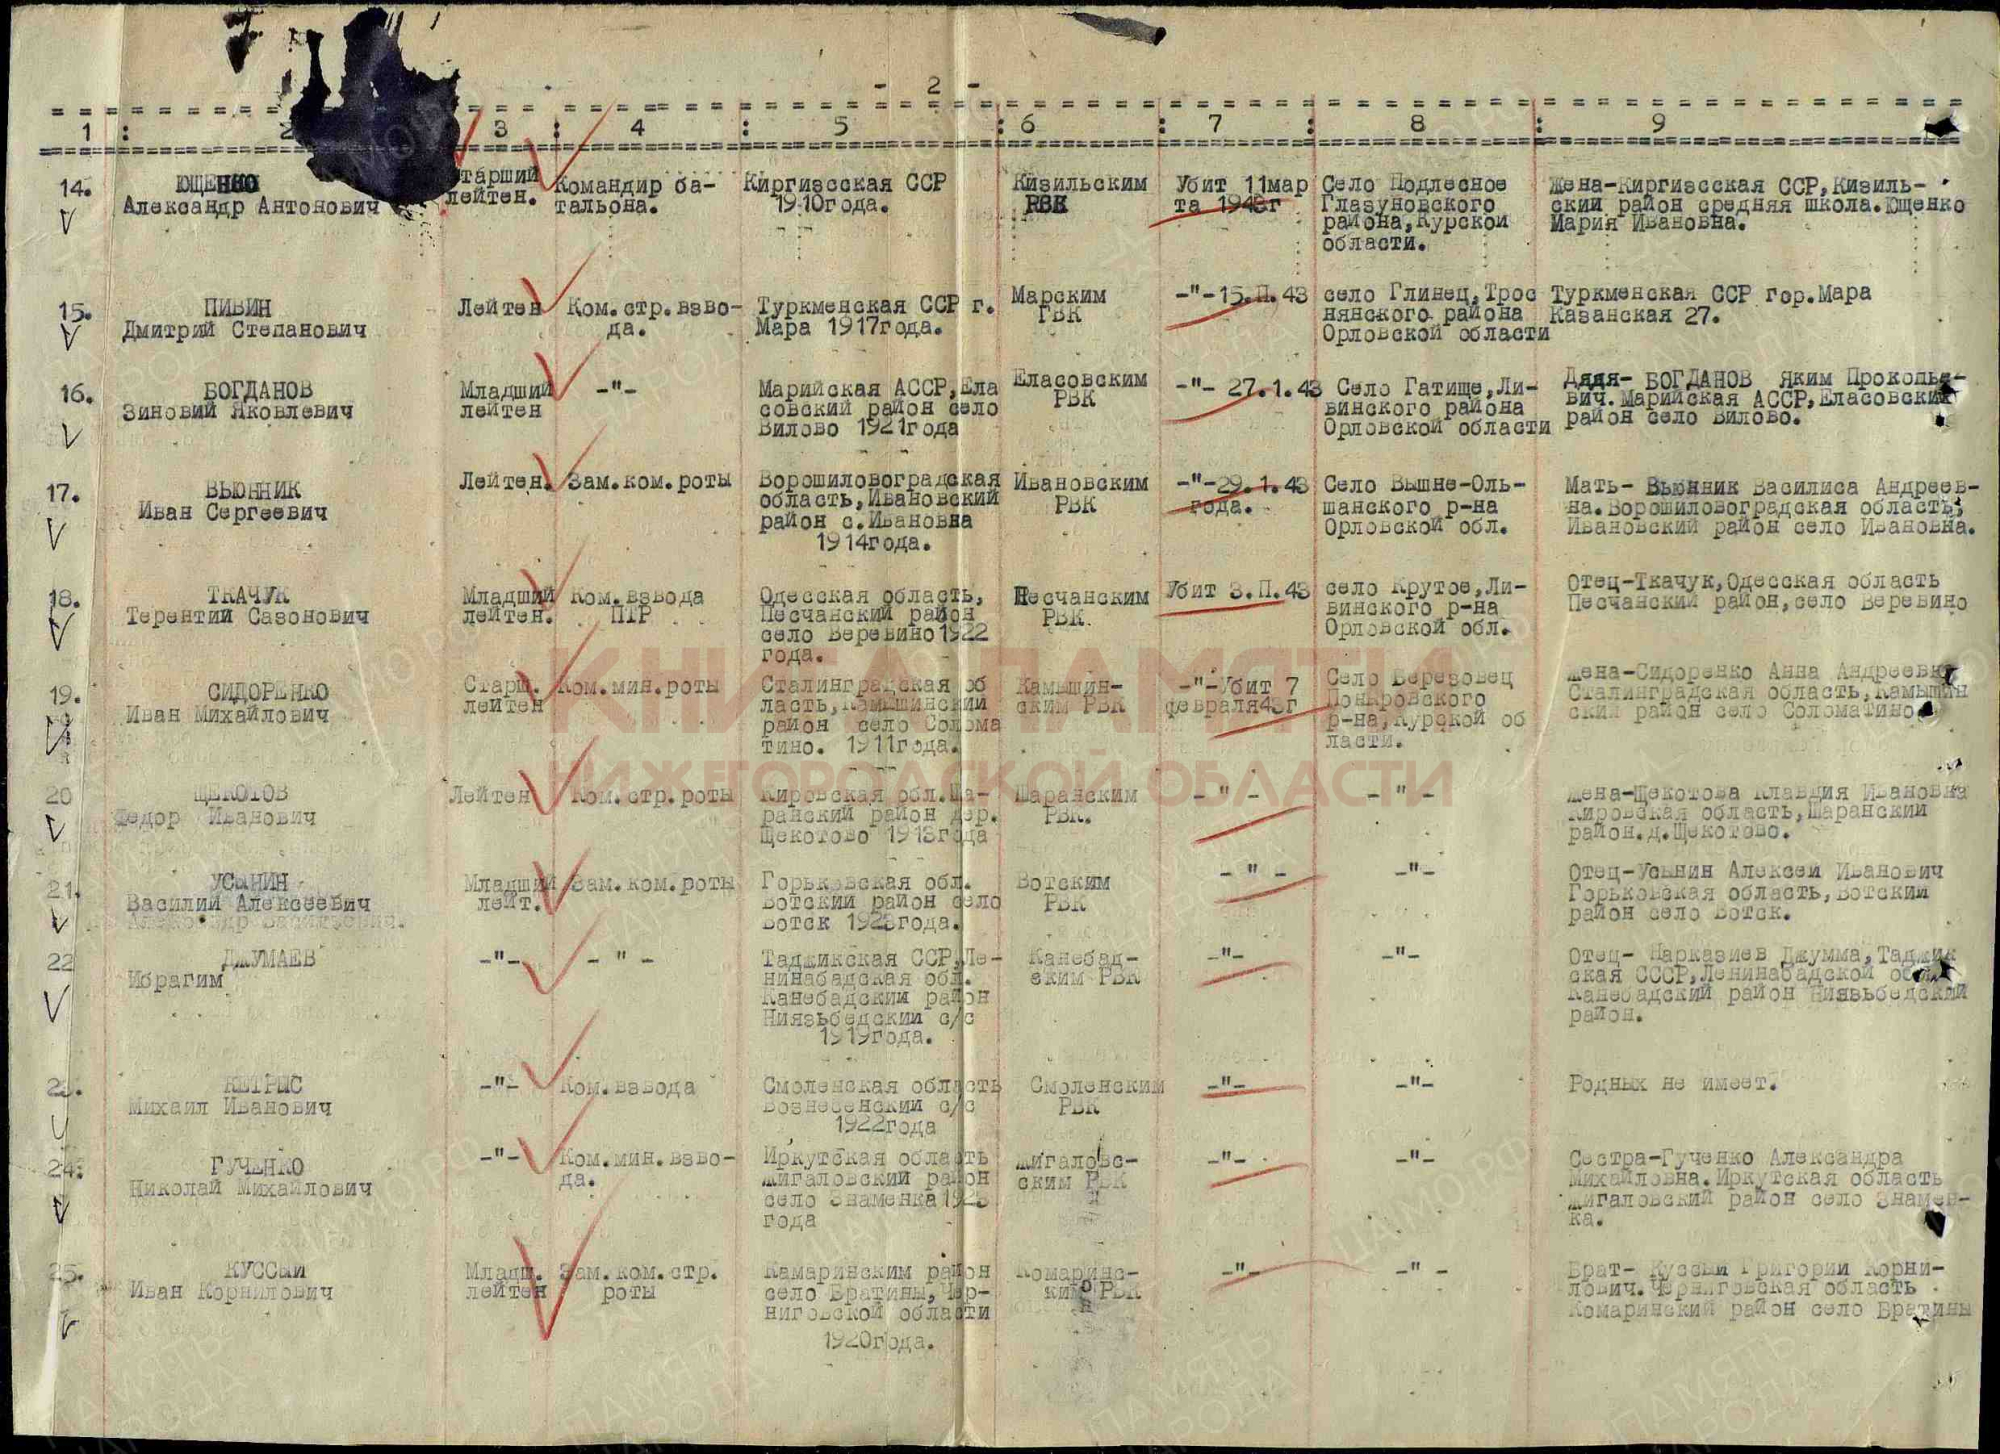 - 2 -
1 : 2 3 : 4 : 5 : 6 : 7 : 8 : 9
14. ЮЩЕНКО
Александр Антонович
Старший
лейтен.
Командир ба-
тальона.
Киргизсская ССР
1910года.
Кизильским
РВК
Убит 11мар
та 1943г
Село Подлесное
Глазуновского
района,Курской
области.
Жена-Киргизсская ССР,Кизиль-
ский район средняя школа.Ющенко
Мария Ивановна.
15. ПИВИН
Дмитрий Степанович
Лейтен
Ком.стр.взво-
да.
Туркменская ССР г.
Мара 1917года.
Марским
ГВК
-"-15.П.43
село Глинец,Трос
нянского района
Орловской области
Туркменская ССР гор.Мара
Казанская 27.
16. БОГДАНОВ
Зиновий Яковлевич
Младший
лейтен
-"-
Марийская АССР,Ела
совский район село
Вилово 1921года
Еласовским
РВК
-"- 27.1.43
Село Гатище,Ли-
винского района
Орловской области
Дядя- БОГДАНОВ Яким Прокопье-
вич.Марийская АССР,Еласовский
район село Вилово.
17. ВЬЮННИК
Иван Сергеевич
Лейтен.
Зам.ком.роты
Ворошиловоградская
область,Ивановский
район с.Ивановна
1914года.
Ивановским
РВК
-"-29.1.43
года.
Село Вышне-Оль-
шанского р-на
Орловской обл.
Мать- Вьюнник Василиса Андреев-
на.Ворошиловоградская область,
Ивановский район село Ивановна.
18. ТКАЧУК
Терентий Сазонович
Младший
лейтен.
Ком.взвода
ПТР
Одесская область,
Песчанский район
село Веревино1922
года.
Песчанским
РВК
Убит 3.П.43
село Крутое,Ли-
винского р-на
Орловской обл.
Отец-Ткачук,Одесская область
Песчанский район,село Веревино
19. СИДОРЕНКО
Иван Михайлович
Старш.
лейтен
Ком.мин.роты
Сталинградская об
ласть,Камышинский
район село Солома
тино. 1911года.
Камышин-
ским РВК
-"-Убит 7
февраля43г
Село Березовец
Поныровского
р-на,Курской об
ласти.
Жена-Сидоренко Анна Андреевна
Сталинградская область,Камышин
ский район село Соломатино.
20 ЩЕКОТОВ
Федор Иванович
Лейтен
Ком.стр.роты
Кировская обл.Ша-
ранский район дер.
Щекотово 1913года
Шаранским
РВК.
-"-
-"-
Жена-Щекотова Клавдия Ивановна
Кировская область,Шаранский
район.д.Щекотово.
21. УСЫНИН
Василий Алексеевич
Младший
лейт.
Зам.ком.роты
Горьковская обл.
Вотский район село
Вотск 1923года.
Вотским
РВК
-"-
-"-
Отец-Усынин Алексей Иванович
Горьковская область,Вотский
район село Вотск.
22 ДЖУМАЕВ
Ибрагим
-"-
-"-
Таджикская ССР,Ле-
нинабадская обл.
Канебадским район
Ниязьбедский с/с
1919года.
Канебад-
ским РВК
-"-
-"-
Отец- Нарказиев Джумма,Таджик
ская СССР,Ленинабадской обл.
Канебадский район Ниязьбедский
район.
23. КЕТРЫС
Михаил Иванович
-"-
Ком.взвода
Смоленская область
Вознесенский с/с
1922года
Смоленским
РВК
-"-
-"-
Родных не имеет.
24. ГУЧЕНКО
Николай Михайлович
-"-
Ком.мин.взво-
да.
Иркутская область
Жигаловский район
село Знаменка1923
года
Жигаловс-
ским РВК
-"-
-"-
Сестра-Гученко Александра
Михайловна.Иркутская область
Жигаловский район село Знамен-
ка.
25. КУССЫЙ
Иван Корнилович
Младш.
лейтен
Зам.ком.стр.
роты
Камаринским район
село Братины,Чер-
ниговской области
1920года.
Комаринс-
ким РВК
-"-
-"-
Брат- Куссый Григорий Корни-
лович.Черниговская область
Комаринский район село Братины
КНИГА ПАМЯТИ
НИЖЕГОРОДСКОЙ ОБЛАСТИ